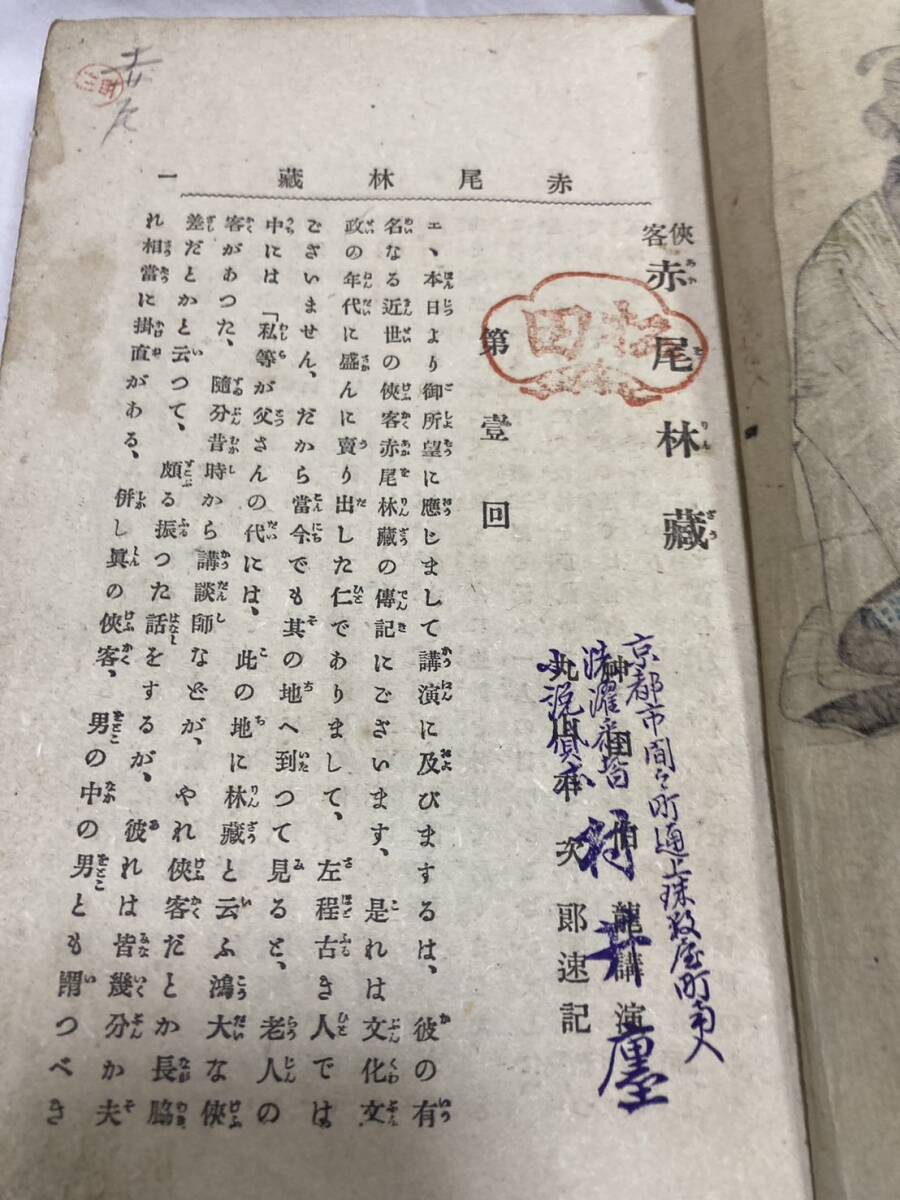 赤尾
赤尾林藏 一
俠客 赤尾林藏
あかをりんざう
松田
京都市間之町通上珠数屋町南入
洗濯兼皆
小説貸本
村井
神田伯龍講演
丸山平次郎速記
第壹回
エ、本日より御所望に應じまして講演に及びまするは、彼の有
名なる近世の俠客赤尾林藏の傳記にございます、是れは文化文
政の年代に盛んに賣り出した仁でありまして、左程古き人では
ございません、だから當今でも其の地へ到つて見ると、老人の
中には「私等が父さんの代には、此の地に林藏と云ふ鴻大な俠
客があつた、隨分昔時から講談師などが、やれ俠客だとか長脇
差だとかと云つて、頗る振つた話をするが、彼れは皆幾分か夫
れ相當に掛直がある、併し眞の俠客、男の中の男とも謂つべき